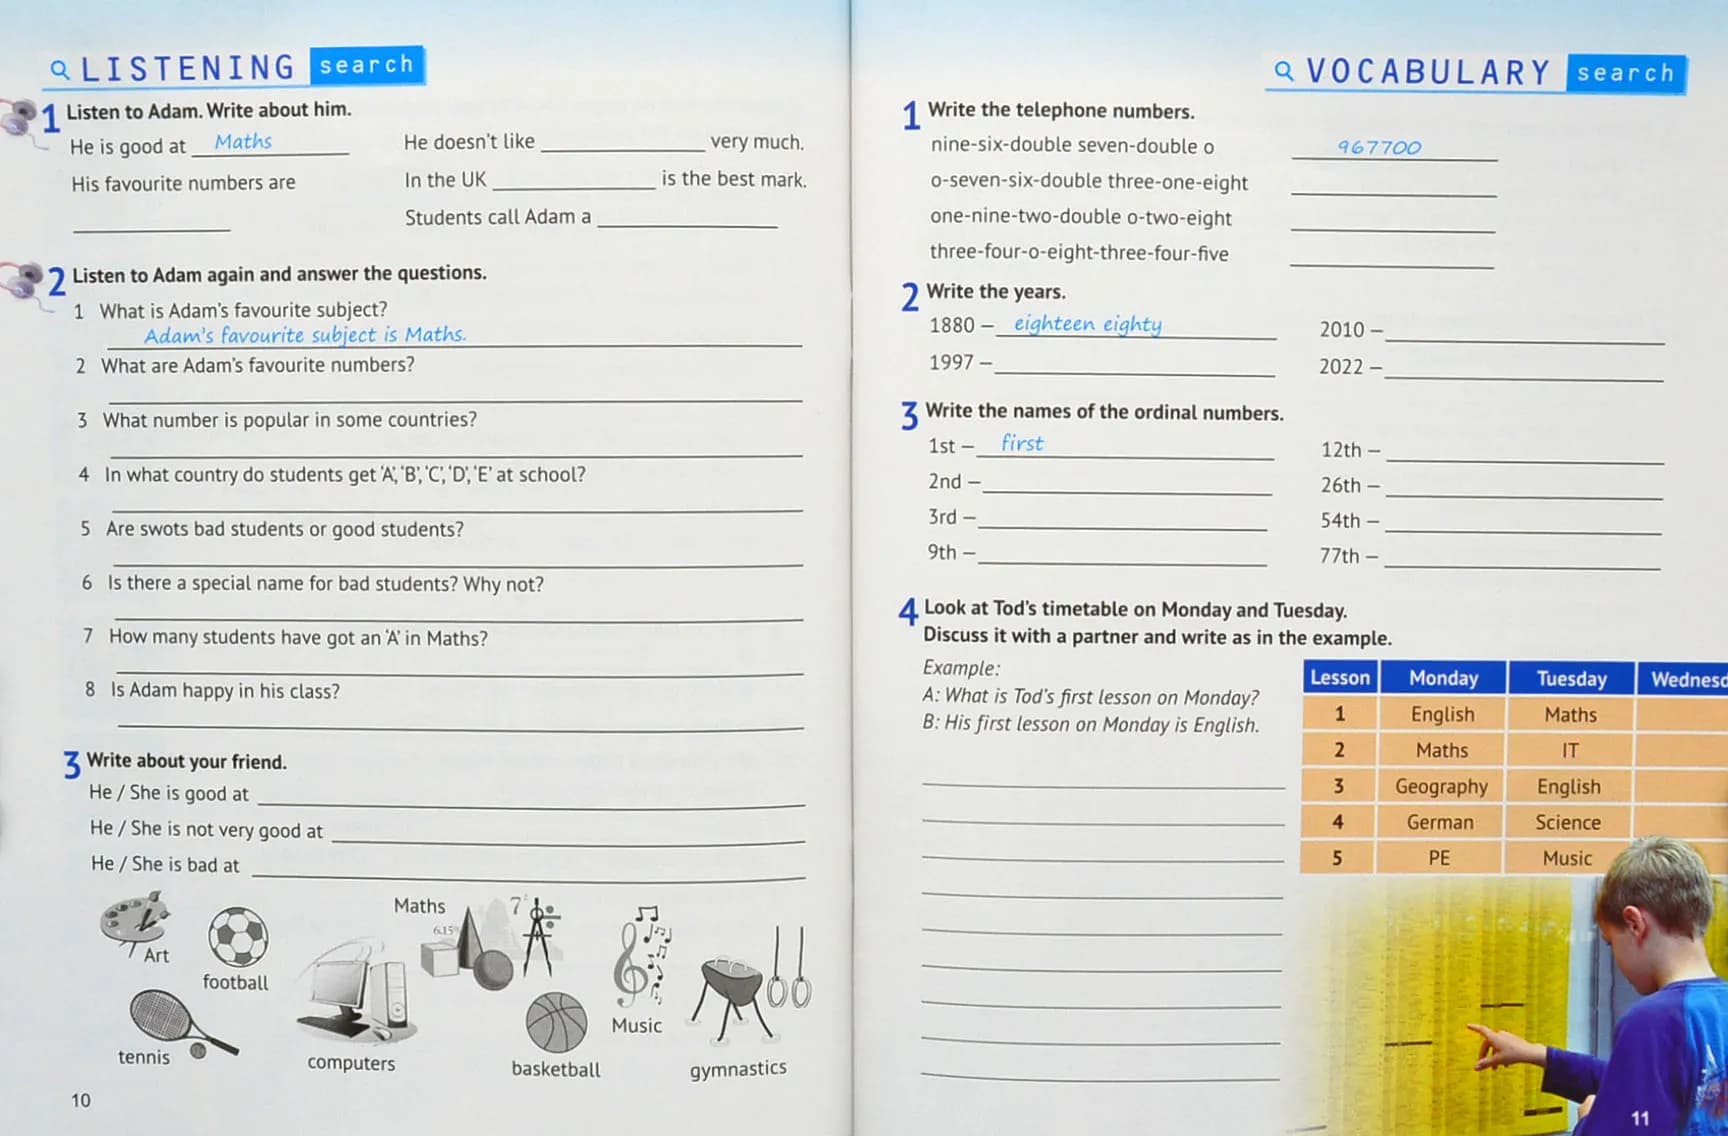 LISTENING search
1 Listen to Adam. Write about him.
He is good at Maths
His favourite numbers are
He doesn't like very much.
In the UK is the best mark.
Students call Adam a
2 Listen to Adam again and answer the questions.
1 What is Adam's favourite subject?
Adam's favourite subject is Maths.
2 What are Adam's favourite numbers?
3 What number is popular in some countries?
4 In what country do students get 'A', 'B', 'C', 'D', 'E' at school?
5 Are swots bad students or good students?
6 Is there a special name for bad students? Why not?
7 How many students have got an 'A' in Maths?
8 Is Adam happy in his class?
3 Write about your friend.
He / She is good at
He / She is not very good at
He / She is bad at
Art
football
Maths
tennis
computers
basketball
Music
gymnastics
10
VOCABULARY search
1 Write the telephone numbers.
nine-six-double seven-double o 967700
o-seven-six-double three-one-eight
one-nine-two-double o-two-eight
three-four-o-eight-three-four-five
2 Write the years.
1880 – eighteen eighty
1997 –
2010 –
2022 –
3 Write the names of the ordinal numbers.
1st – first
2nd –
3rd –
9th –
12th –
26th –
54th –
77th –
4 Look at Tod's timetable on Monday and Tuesday.
Discuss it with a partner and write as in the example.
Example:
A: What is Tod's first lesson on Monday?
B: His first lesson on Monday is English.
Lesson Monday Tuesday Wednesd
1 English Maths
2 Maths IT
3 Geography English
4 German Science
5 PE Music
11